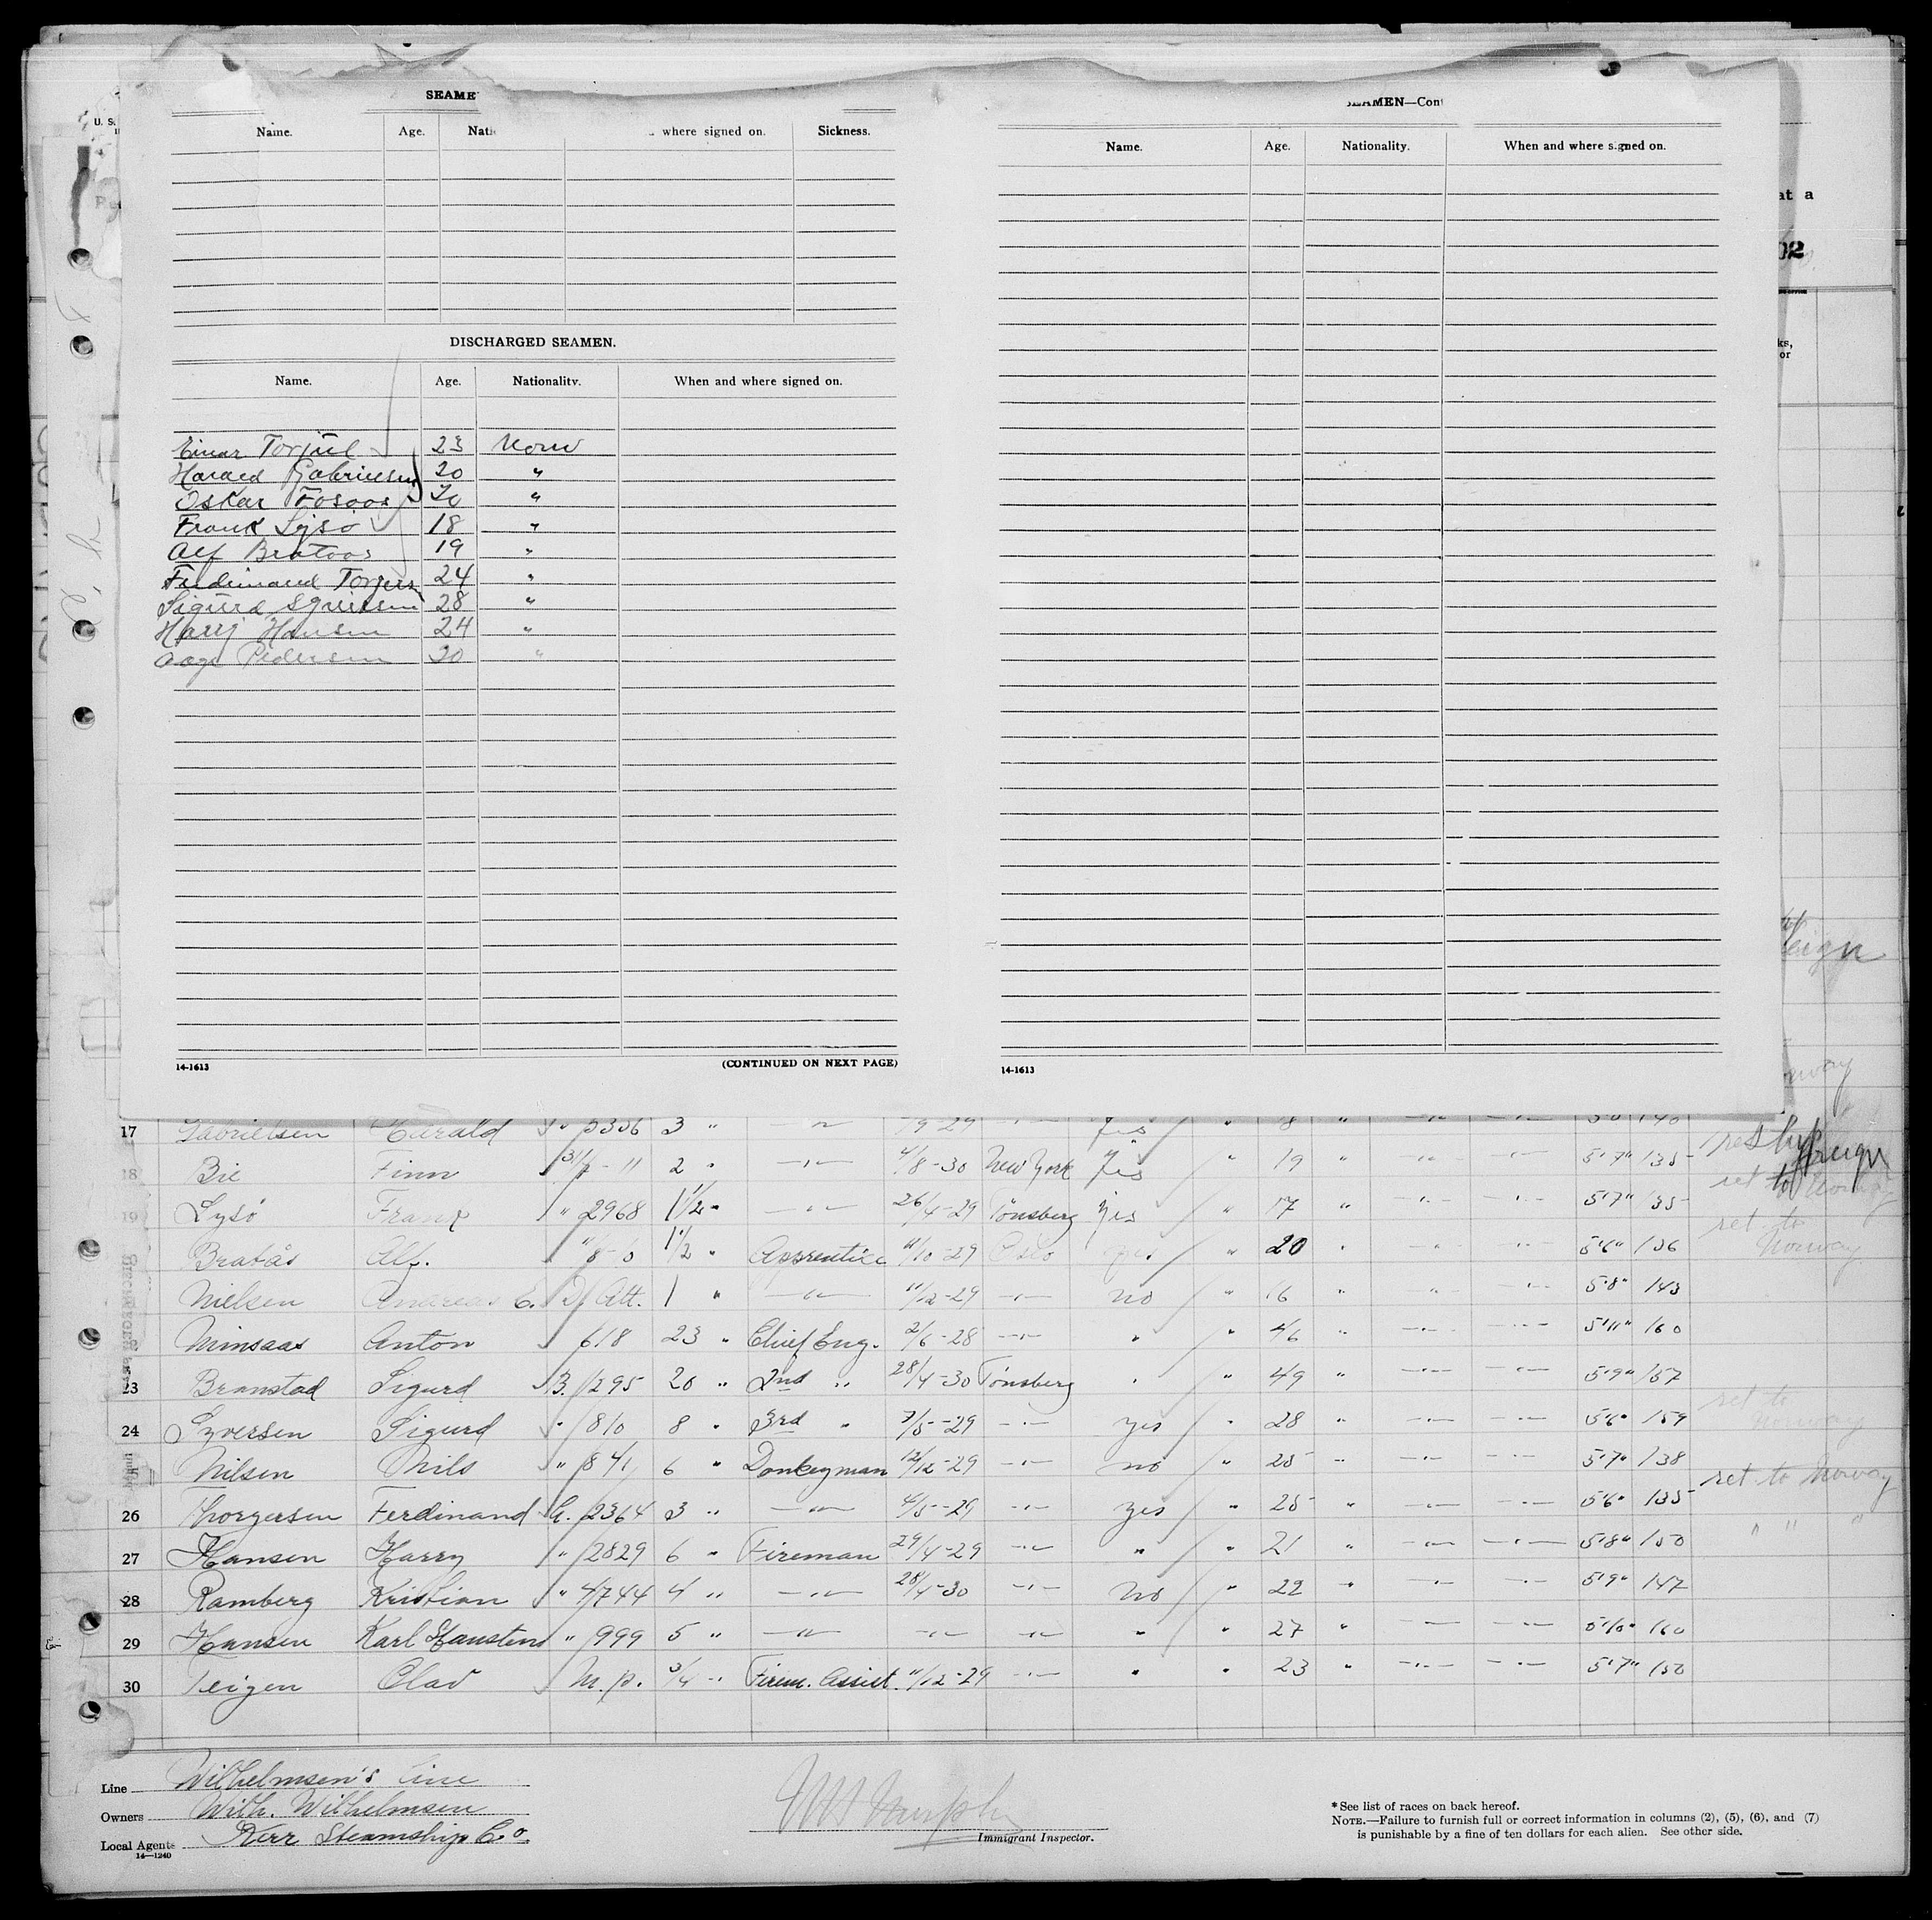 SEAME
Name. Age. Nati where signed on. Sickness.
DISCHARGED SEAMEN.
Name. Age. Nationality. When and where signed on.
Einar Torjul 23 Norw
Harald Gabrielsen 20 "
Oskar Fosaas 20 "
Frank Lysö 18 "
Alf Brataas 19 "
Ferdinand Torjers 24 "
Sigurd 28 "
Harry Hansen 24 "
Aage Pedersen 20 "
14-1613 (CONTINUED ON NEXT PAGE)
SEAMEN—Con
Name. Age. Nationality. When and where signed on.
14-1613
U. S.
at a
02
ks,
or
eign
17 Gabrielsen Harald " 5336 3 " —"— 9-29 —"— yes " 18 " —"— —"— 140
18 Bie Finn 2 " —"— 4/8-30 New York yes " 19 " —"— —"— 5'7" 135 reship foreign
19 Lysö Frank " 2968 1 1/2 " —"— 26/4-29 Tönsberg yes " 17 " —"— —"— 5'7" 135 ret to Norway
Bratås Alf. 1 1/2 " Apprentice 11/10-29 Oslo yes " 20 " —"— —"— 5'6" 136 ret to Norway
Nielsen Andreas E. D. Att. 1 " —"— 11/12-29 —"— no " 16 " —"— —"— 5'8" 143
Minsaas Anton 618 23 " Chief Eng. 2/6-28 —"— " " 46 " —"— —"— 5'11" 160
23 Branstad Sigurd B. 1295 20 " 2nd " 28/4-30 Tönsberg " " 49 " —"— —"— 5'9" 157
24 Syversen Sigurd " 810 8 " 3rd " 7/5-29 —"— yes " 28 " —"— —"— 5'6" 159 ret to Norway
Nilsen Nils " 841 6 " Donkeyman 12/12-29 —"— no " 25 " —"— —"— 5'7" 138
26 Thorgersen Ferdinand C. 2364 3 " —"— 4/5-29 —"— yes " 25 " —"— —"— 5'6" 135 ret to Norway
27 Hansen Harry " 2829 6 " Fireman 29/4-29 —"— " " 21 " —"— —"— 5'8" 150 " " "
28 Ramberg Kristian " 4744 4 " —"— 28/4-30 —"— no " 22 " —"— —"— 5'9" 147
29 Hansen Karl Haustens " 999 5 " —"— —"— —"— " " 27 " —"— —"— 5'10" 160
30 Teigen Olav M.p. 3/4 " Firem. Assist. 11/12-29 —"— " " 23 " —"— —"— 5'7" 150
Line Wilhelmsen's Line
Owners Wilh. Wilhelmsen
Local Agents Kerr Steamship Co.
14—1240
Murphy
Immigrant Inspector.
*See list of races on back hereof.
NOTE.—Failure to furnish full or correct information in columns (2), (5), (6), and (7)
is punishable by a fine of ten dollars for each alien. See other side.